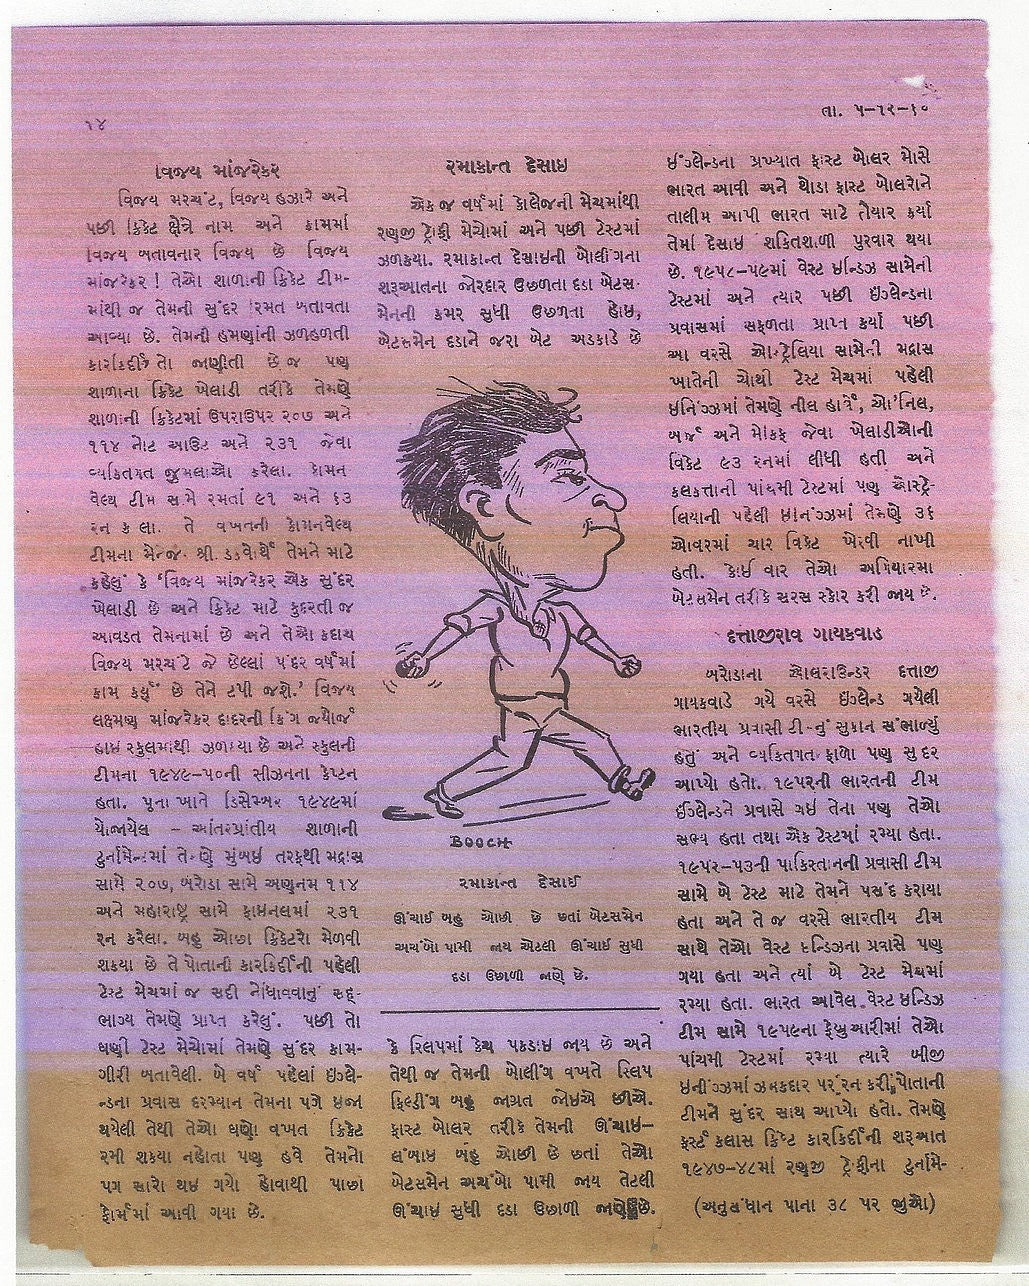 ૧૪
તા. ૫–૧૨–૬૦
વિજય માંજરેકર
વિજય મરચંટ, વિજય હઝારે અને
પછી ક્રિકેટ ક્ષેત્રે નામ અને કામમાં
વિજય બતાવનાર વિજય છે વિજય
માંજરેકર ! તેઓ શાળાની ક્રિકેટ ટીમ-
માંથી જ તેમની સુંદર રમત બતાવતા
આવ્યા છે. તેમની હમણાંની ઝળહળતી
કારકિર્દી તો જાણીતી છે જ પણ
શાળાના ક્રિકેટ ખેલાડી તરીકે તેમણે
શાળાની ક્રિકેટમાં ઉપરાઉપર ૨૦૭ અને
૧૧૪ નોટ આઉટ અને ૨૩૧ જેવા
વ્યકિતગત જુમલાઓ કરેલા. કોમન
વેલ્થ ટીમ સામે રમતાં ૯૧ અને ૬૩
રન કરેલા. તે વખતની કોમનવેલ્થ
ટીમના મેનેજર શ્રી. ડકવર્થે તેમને માટે
કહેલું કે ‘વિજય માંજરેકર એક સુંદર
ખેલાડી છે અને ક્રિકેટ માટે કુદરતી જ
આવડત તેમનામાં છે અને તેઓ કદાચ
વિજય મરચંટે જે છેલ્લાં પંદર વર્ષમાં
કામ કર્યું છે તેને ટપી જશે.’ વિજય
લક્ષ્મણ માંજરેકર દાદરની કિંગ જ્યોર્જ
હાઇ સ્કુલમાંથી ઝળક્યા છે અને સ્કુલની
ટીમના ૧૯૪૯–૫૦ની સીઝનના કેપ્ટન
હતા. પૂના ખાતે ડિસેમ્બર ૧૯૪૯માં
યોજાયેલ – આંતરપ્રાંતીય શાળાની
ટુર્નામેન્ટમાં તેમણે મુંબઇ તરફથી મદ્રાસ
સામે ૨૦૭, બરોડા સામે અણનમ ૧૧૪
અને મહારાષ્ટ્ર સામે ફાઇનલમાં ૨૩૧
રન કરેલા. બહુ ઓછા ક્રિકેટરો મેળવી
શકયા છે તે પોતાની કારકિર્દીની પહેલી
ટેસ્ટ મેચમાં જ સદી નોંધાવવાનું સદ્-
ભાગ્ય તેમણે પ્રાપ્ત કરેલું. પછી તો
ઘણી ટેસ્ટ મેચોમાં તેમણે સુંદર કામ-
ગીરી બતાવેલી. બે વર્ષ પહેલાં ઇંગ્લે-
ન્ડના પ્રવાસ દરમ્યાન તેમના પગે ઇજા
થયેલી તેથી તેઓ ઘણો વખત ક્રિકેટ
રમી શકયા નહોતા પણ હવે તેમનો
પગ સારો થઇ ગયો હોવાથી પાછા
ફોર્મમાં આવી ગયા છે.
રમાકાન્ત દેસાઇ
એક જ વર્ષમાં કોલેજની મેચમાંથી
રણજી ટ્રોફી મેચોમાં અને પછી ટેસ્ટમાં
ઝળકયા. રમાકાન્ત દેસાઇની બોલીંગના
શરૂઆતના જોરદાર ઉછળતા દડા બેટસ-
મેનની કમર સુધી ઉછળતા હોઇ,
બેટસમેન દડાને જરા બેટ અડકાડે છે
BOOCH
રમાકાંત દેસાઈ
ઊંચાઈ બહુ ઓછી છે છતાં બેટસમેન
અચંબો પામી જાય એટલી ઊંચાઈ સુધી
દડા ઉછાળી જાણે છે.
કે સ્લિપમાં કેચ પકડાઇ જાય છે અને
તેથી જ તેમની બોલીંગ વખતે સ્લિપ
ફિલ્ડીંગ બહુ જાગ્રત જોઇએ છીએ.
ફાસ્ટ બોલર તરીકે તેમની ઊંચાઇ–
લંબાઇ બહુ ઓછી છે છતાં તેઓ
બેટસમેન અચંબો પામી જાય તેટલી
ઊંચાઇ સુધી દડા ઉછાળી જાણે છે.
ઈંગ્લેન્ડના પ્રખ્યાત ફાસ્ટ બોલર મોસે
ભારત આવી અને થોડા ફાસ્ટ બોલરોને
તાલીમ આપી ભારત માટે તૈયાર કર્યા
તેમાં દેસાઇ શકિતશાળી પુરવાર થયા
છે. ૧૯૫૮–૫૯માં વેસ્ટ ઇન્ડિઝ સામેની
ટેસ્ટમાં અને ત્યાર પછી ઇંગ્લેન્ડના
પ્રવાસમાં સફળતા પ્રાપ્ત કર્યા પછી
આ વરસે ઓસ્ટ્રેલિયા સામેની મદ્રાસ
ખાતેની ચોથી ટેસ્ટ મેચમાં પહેલી
ઇનિંગ્ઝમાં તેમણે નીલ હાર્વે, ઓ’નિલ,
બર્જ અને મેકિફ જેવા ખેલાડીઓની
વિકેટ ૯૩ રનમાં લીધી હતી અને
કલકત્તાની પાંચમી ટેસ્ટમાં પણ ઓસ્ટ્રે-
લિયાની પહેલી ઇનિંગ્ઝમાં તેમણે ૩૬
ઓવરમાં ચાર વિકેટ ખેરવી નાખી
હતી. કોઈ વાર તેઓ અગિયારમા
બેટસમેન તરીકે સરસ સ્કોર કરી જાય છે.
દત્તાજીરાવ ગાયકવાડ
બરોડાના ઓલરાઉન્ડર દત્તાજી
ગાયકવાડે ગયે વરસે ઇંગ્લેન્ડ ગયેલી
ભારતીય પ્રવાસી ટીમનું સુકાન સંભાળ્યું
હતું અને વ્યકિતગત ફાળો પણ સુંદર
આપ્યો હતો. ૧૯૫૨ની ભારતની ટીમ
ઈંગ્લેન્ડને પ્રવાસે ગઇ તેના પણ તેઓ
સભ્ય હતા તથા એક ટેસ્ટમાં રમ્યા હતા.
૧૯૫૨–૫૩ની પાકિસ્તાનની પ્રવાસી ટીમ
સામે બે ટેસ્ટ માટે તેમને પસંદ કરાયા
હતા અને તે જ વરસે ભારતીય ટીમ
સાથે તેઓ વેસ્ટ ઇન્ડિઝના પ્રવાસે પણ
ગયા હતા અને ત્યાં બે ટેસ્ટ મેચમાં
રમ્યા હતા. ભારત આવેલ વેસ્ટ ઇન્ડિઝ
ટીમ સામે ૧૯૫૯ના ફેબ્રુઆરીમાં તેઓ
પાંચમી ટેસ્ટમાં રમ્યા ત્યારે બીજી
ઇનીંગ્ઝમાં ઝમકદાર પર રન કરી પોતાની
ટીમને સુંદર સાથ આપ્યો હતો. તેમણે
ફર્સ્ટ કલાસ ક્રિકેટ કારકિર્દીની શરૂઆત
૧૯૪૭–૪૮માં રણજી ટ્રોફીના ટુર્નામે-
(અનુસંધાન પાના ૩૮ પર જુઓ)